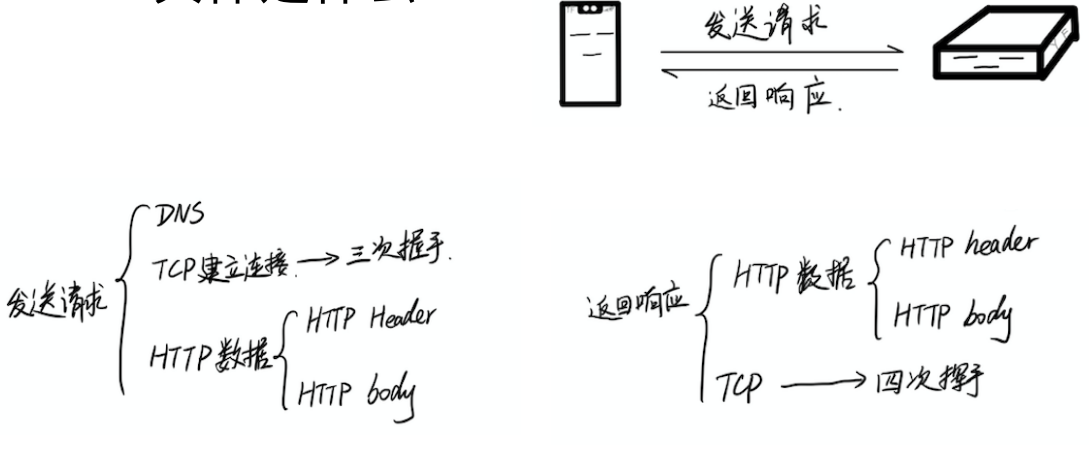 发送请求
返回响应.
DNS
TCP建立连接. → 三次握手.
发送请求
HTTP数据
HTTP Header
HTTP body
返回响应
HTTP数据
HTTP header
HTTP body
TCP → 四次挥手